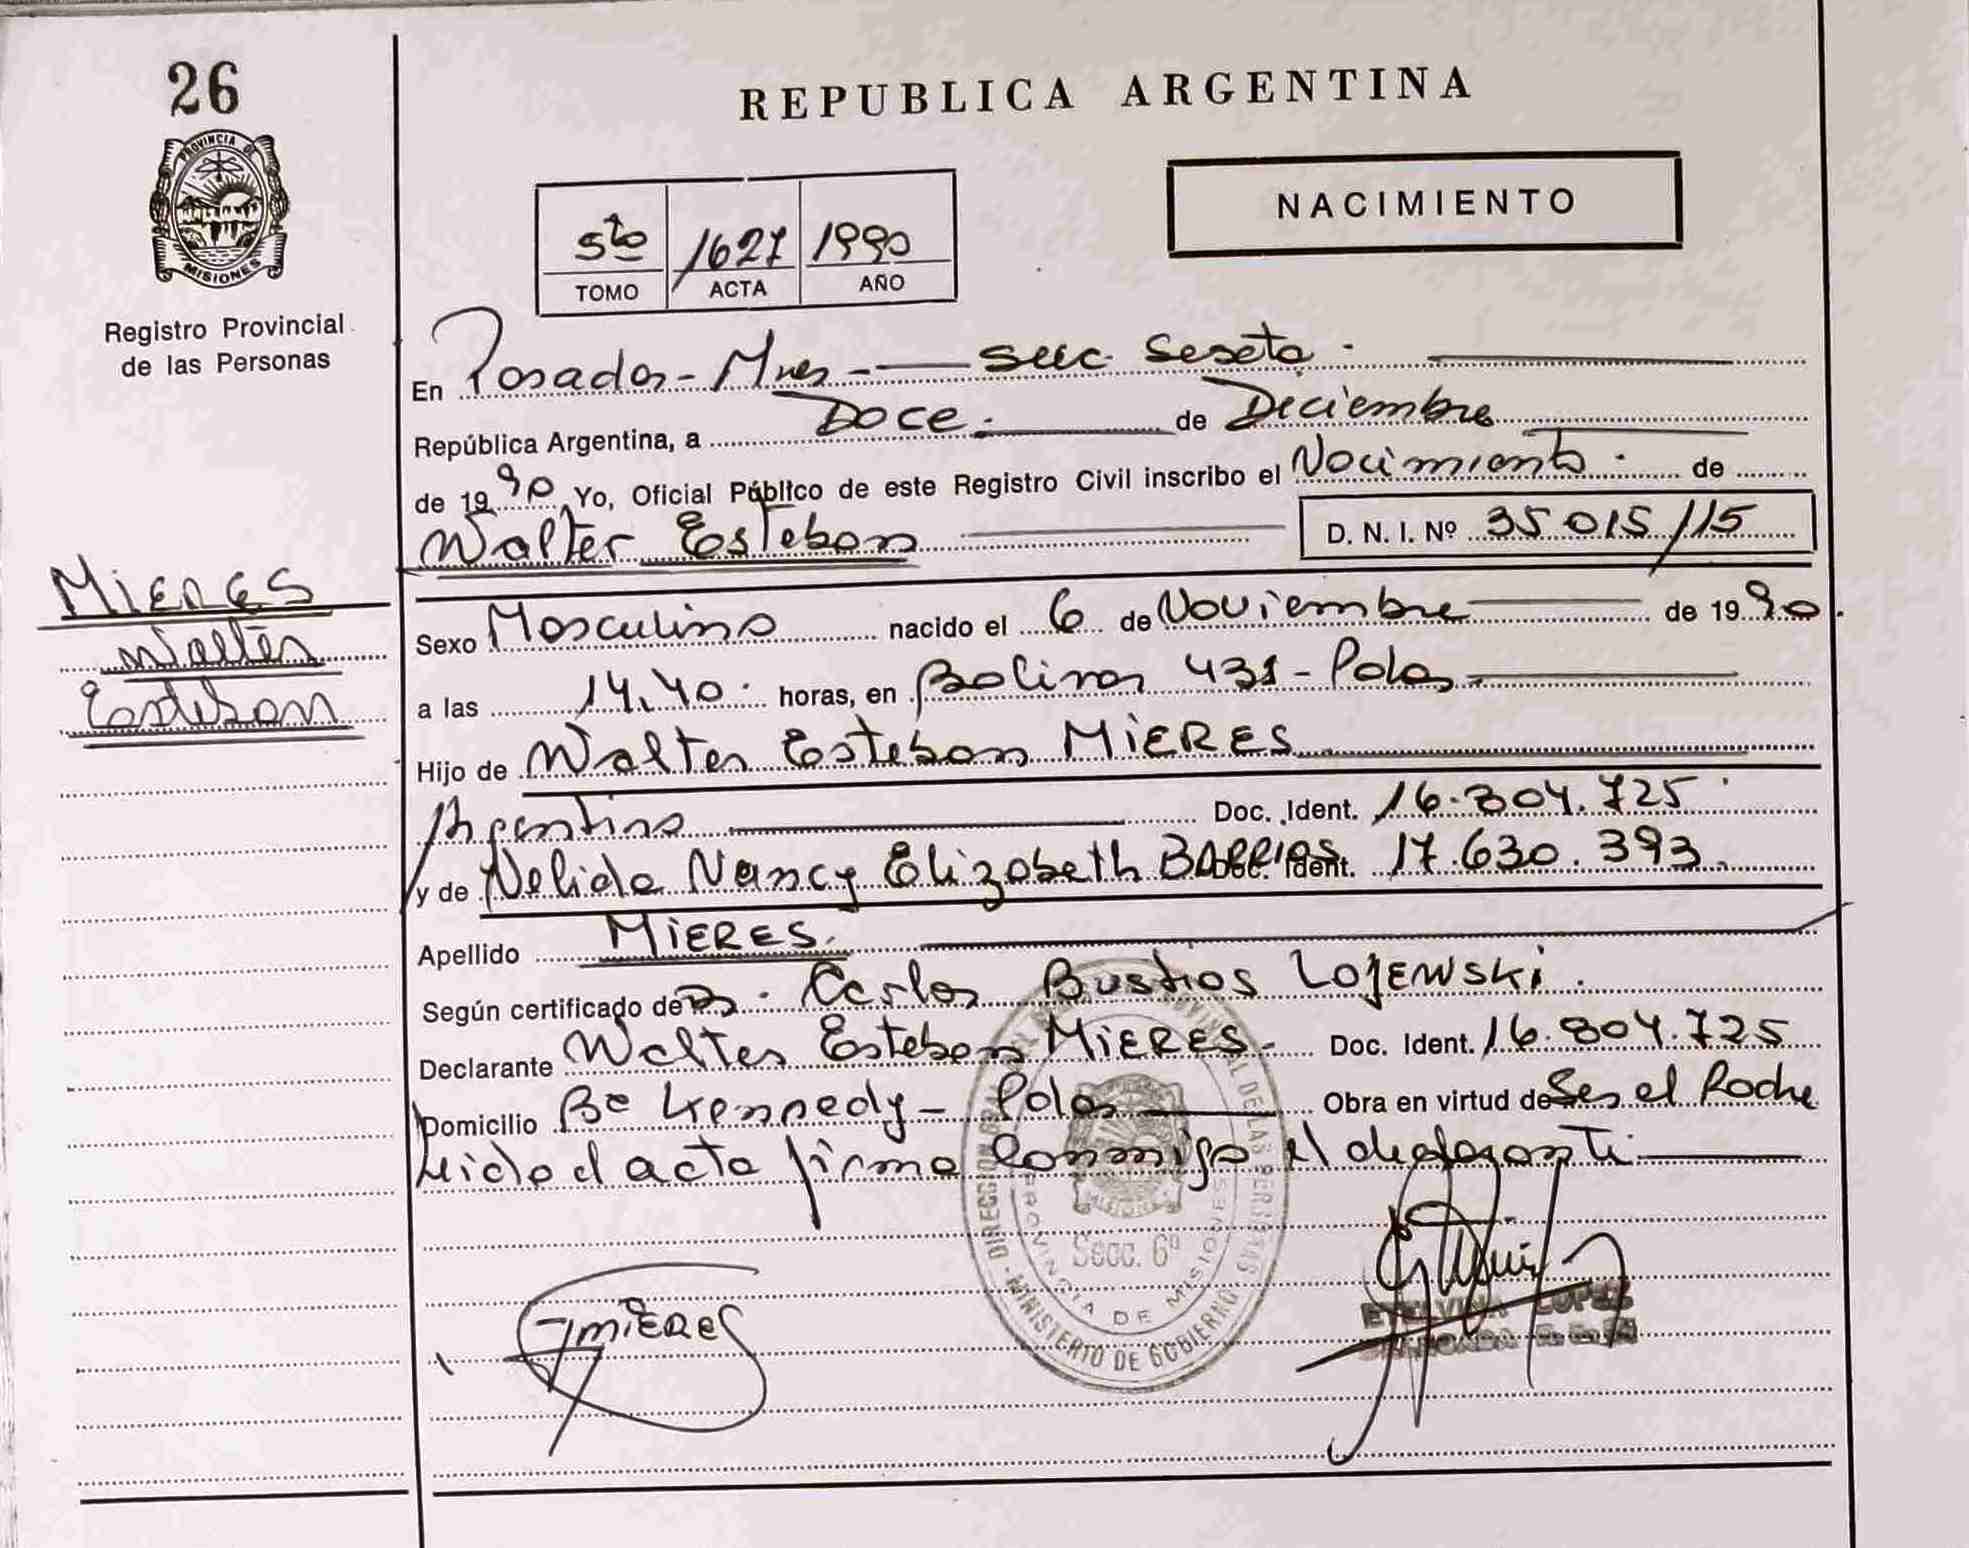 26
PROVINCIA DE
MISIONES
Registro Provincial
de las Personas
MIERES
Walter
Esteban
REPUBLICA ARGENTINA
NACIMIENTO
5to 1627 1990
TOMO ACTA AÑO
En Posadas - Mnes - Secc. Sexta.
República Argentina, a Doce. de Diciembre
de 1990 Yo, Oficial Público de este Registro Civil inscribo el Nacimiento. de
Walter Esteban D. N. I. Nº 35 015 115
Sexo Masculino nacido el 6 de Noviembre de 1990.
a las 14.40. horas, en Bolivar 431 - Pdas
Hijo de Walter Esteban MIERES
Argentino Doc. Ident. 16.804.725
y de Nelida Nancy Elizabeth BARRIOS Ident. 17.630.393
Apellido MIERES.
Según certificado de Dr. Carlos Bustios LOJEWSKI.
Declarante Walter Esteban MIERES - Doc. Ident. 16.804.725
Domicilio Bº Kennedy - Pdas Obra en virtud de Ser el Padre
leida el acta firma conmigo el declarante
DE LAS PERSONAS
Secc. 6ª
PROVINCIA DE MISIONES
MINISTERIO DE GOBIERNO
MIERES
LOPEZ